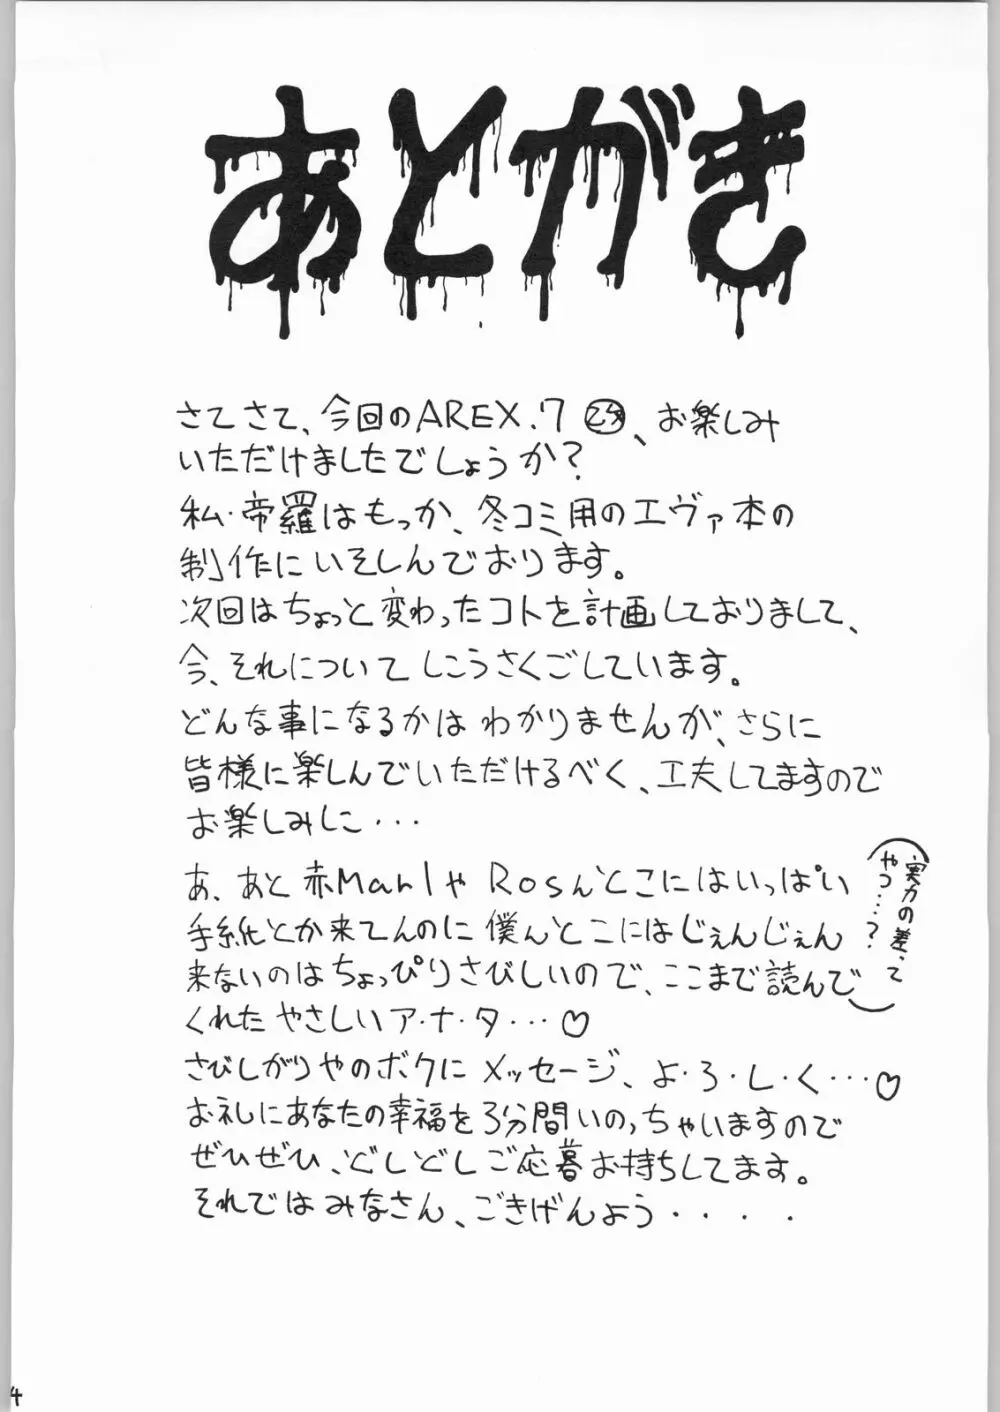 あとがき
さてさて、今回のAREX.7、お楽しみ
いただけましたでしょうか？
私・帝羅はもっか、冬コミ用のエヴァ本の
制作にいそしんでおります。
次回はちょっと変わったコトを計画しておりまして、
今、それについてしこうさくごしています。
どんな事になるかはわかりませんが、さらに
皆様に楽しんでいただけるべく、工夫してますので
お楽しみに・・・
あ、あと赤MarlやRosんとこにはいっぱい
手紙とか来てんのに僕んとこにはじぇんじぇん
(実力の差、て
やつ・・・?)
来ないのはちょっぴりさびしいので、ここまで読んで
くれたやさしいア・ナ・タ・・・♡
さびしがりやのボクにメッセージ、よ・ろ・し・く・・・♡
お礼にあなたの幸福を3分間いのっちゃいますので
ぜひぜひ、どしどしご応募お持ちしてます。
それではみなさん、ごきげんよう・・・・
4